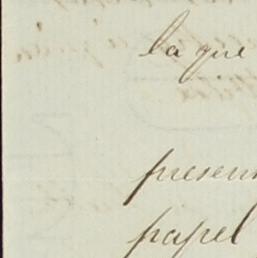 la que
presen
papel